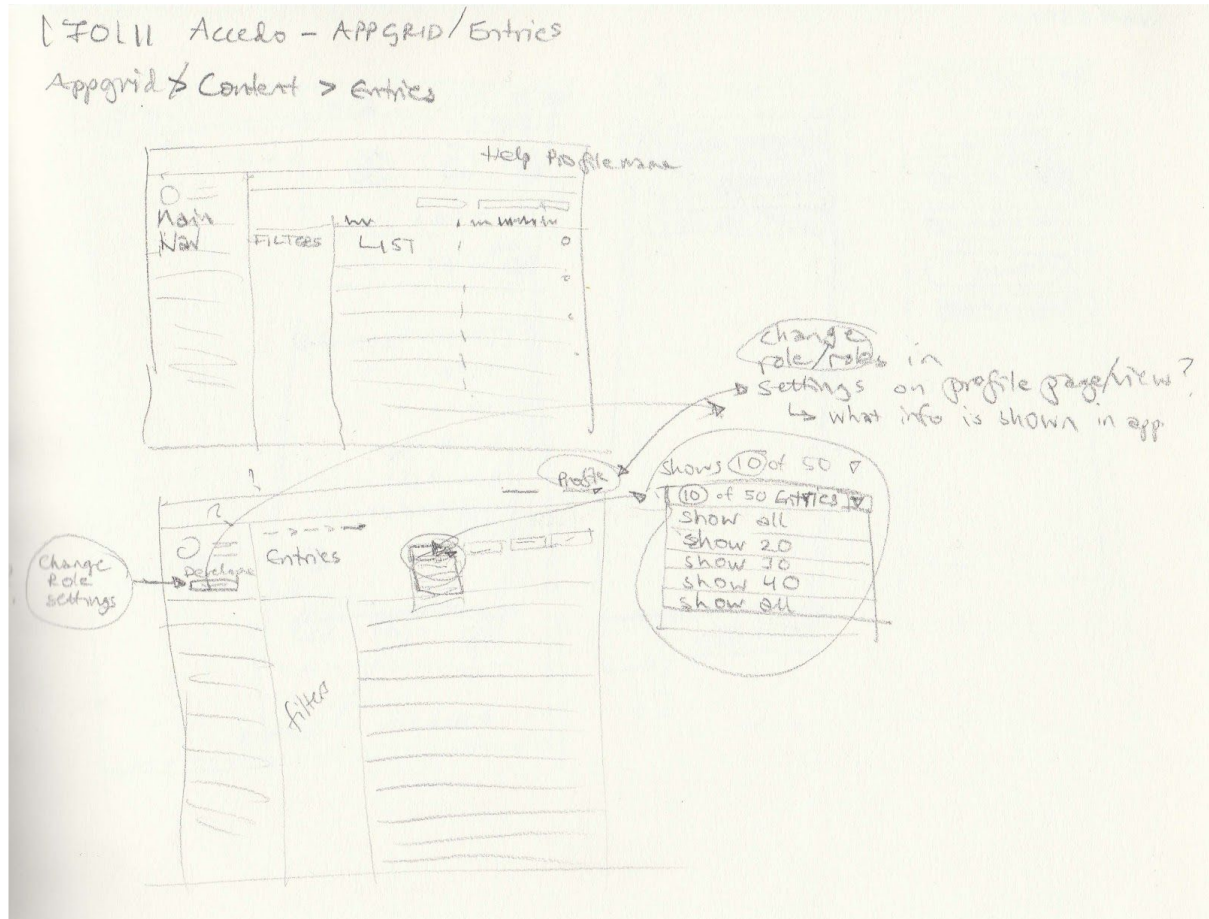 170111 Accedo - APPGRID/Entries
Appgrid > Content > Entries
Help Profilename
Main
Nav
FILTERS
LIST
change
role/roles in
settings on profile page/view?
↳ what info is shown in app.
Profile
Shows 10 of 50
10 of 50 Entries
Show all
Show 20
Show 30
Show 40
Show all
?
?
Entries
Develope
Change
Role
settings
filter